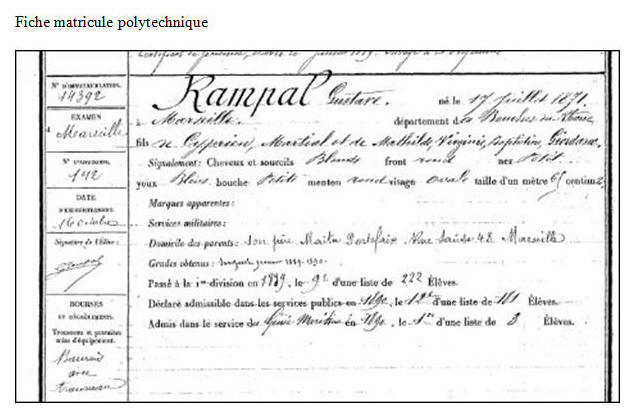 Fiche matricule polytechnique
N° D'IMMATRICULATION.
14392
EXAMEN
à Marseille
N° D'ADMISSION.
142
DATE
D'ENREGISTREMENT.
16 octobre
Signature de l'Élève:
BOURSES
ET DÉGRÈVEMENTS.
Trousseau et première
mise d'équipement.
Bourse
avec
trousseau
Rampal Gustave. né le 17 juillet 1871.
à Marseille. département des Bouches du Rhône
fils de Martial et de Mathilde, Virginie, Giordana
Signalement: Cheveux et sourcils Blonds front rond nez Petit
yeux Bleus bouche Petite menton rond visage ovale taille d'un mètre 65 centim.
Marques apparentes:
Services militaires:
Domicile des parents: Son père Maître Portefaix Rue 48. Marseille
Grades obtenus: 1889-1890
Passé à la 1re division en 1889, le 9e d'une liste de 222 Élèves.
Déclaré admissible dans les services publics en 1890, le 12e d'une liste de 181 Élèves.
Admis dans le service du Génie Maritime en 1890, le 1er d'une liste de 3 Élèves.